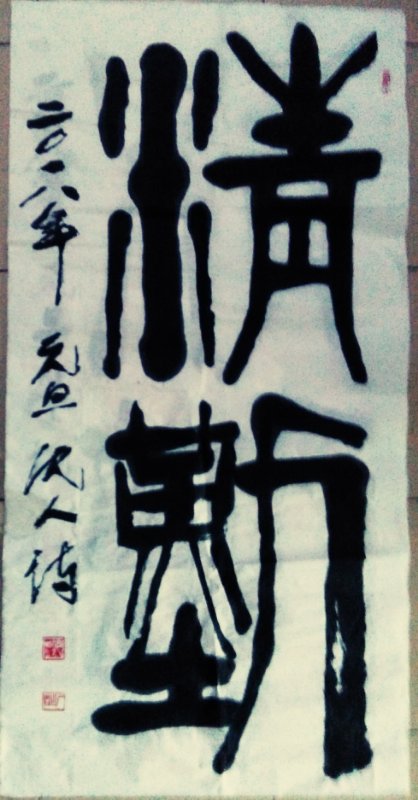 清勤
二〇一八年 元旦 沈人